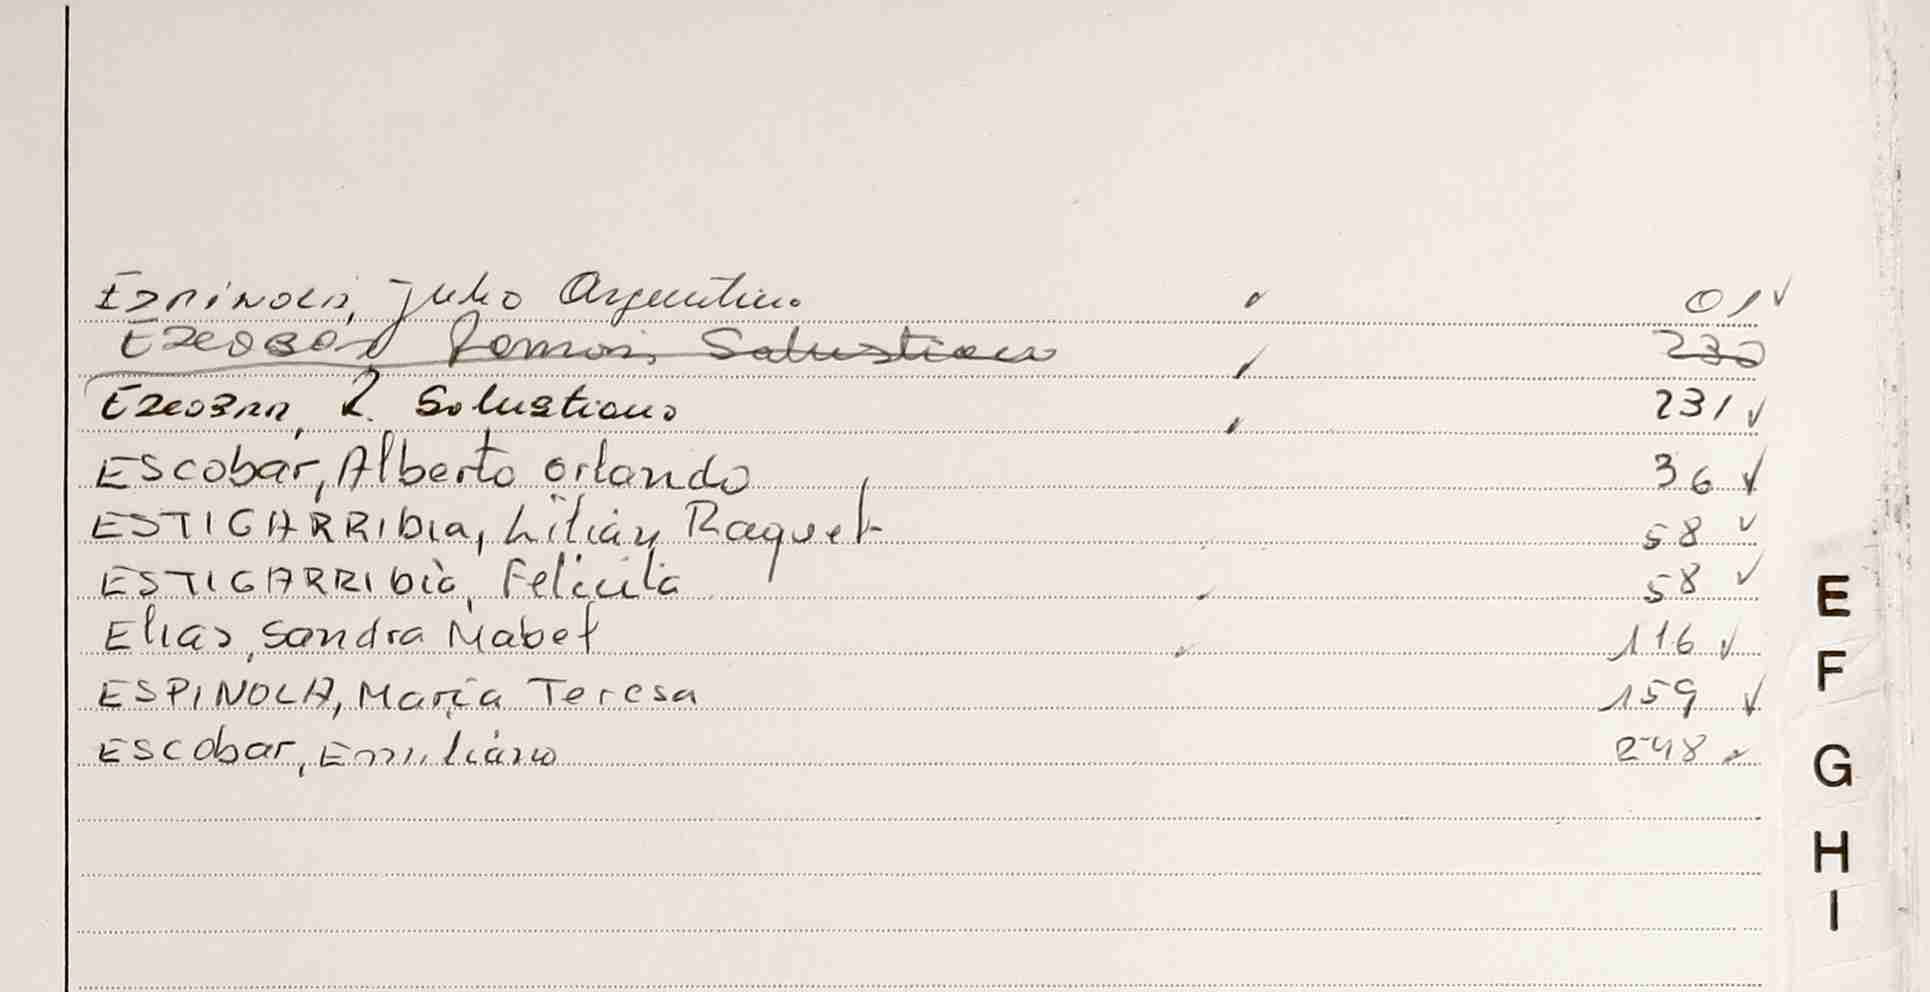 Espinola, Julio Argentino 01
Escobar Ramon Salustiano 230
Escobar, R. Salustiano 231
Escobar, Alberto Orlando 36
ESTIGARRIBIA, Lilian Raquel 58
ESTIGARRIBIA, Felicita 58
Elias, Sandra Mabel 116
ESPINOLA, Maria Teresa 159
Escobar, Emiliano 248
E
F
G
H
I